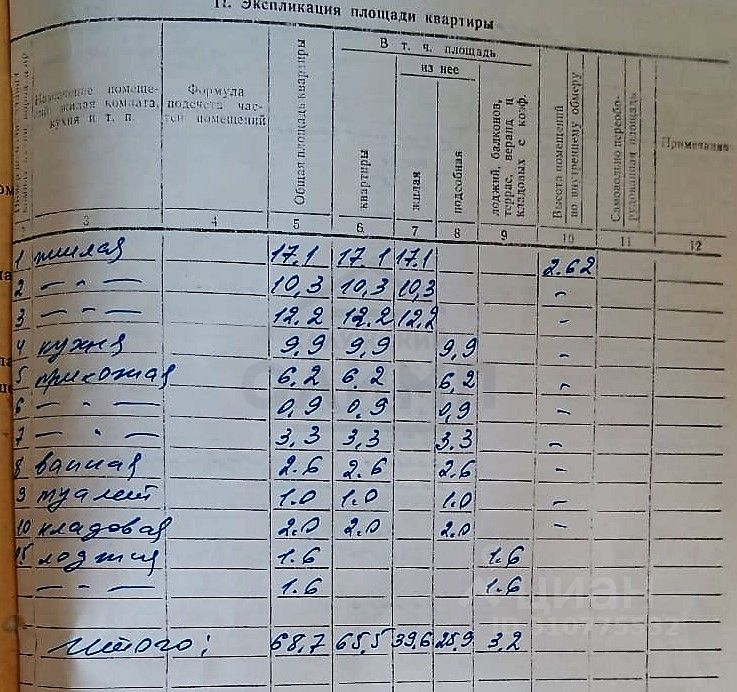 II. Экспликация площади квартиры
Назначение помещений: жилая комната, кухня и т. п.
Формула подсчета частей помещений
Общая площадь квартиры
В т. ч. площадь
квартиры
из нее
жилая
подсобная
лоджий, балконов, террас, веранд и кладовых с коэф.
Высота помещений по внутреннему обмеру
Самовольно переоборудованная площадь
Примечание
3 4 5 6 7 8 9 10 11 12
1 жилая 17.1 17.1 17.1 2.62
2 — „ — 10,3 10,3 10,3 „
3 — „ — 12.2 12.2 12.2 „
4 кухня 9,9 9,9 9,9 „
5 прихожая 6,2 6.2 6,2 „
6 — „ — 0,9 0,9 0,9 „
7 — „ — 3,3 3,3 3,3 „
8 ванная 2.6 2.6 2.6 „
9 туалет 1.0 1.0 1.0 „
10 кладовая 2.0 2.0 2.0 „
лоджия 1.6 1.6
— „ — 1.6 1.6
Итого: 68,7 65,5 39,6 25,9 3,2
циан